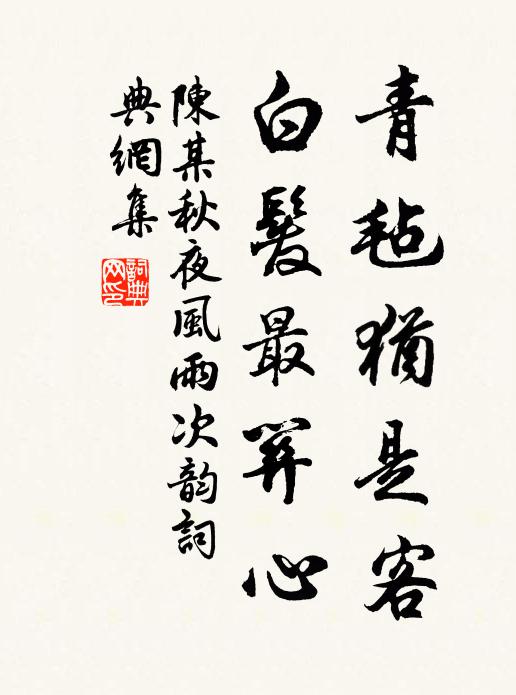 青毡猶是客
白髮最關心
陳某秋夜風雨次韵詞
典網集
詞典
网印